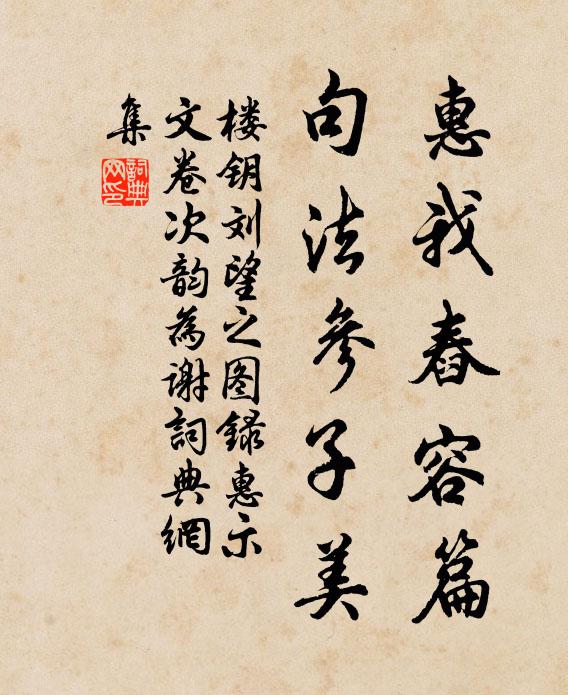 惠我舂容篇
句法參子美
楼钥刘望之图録惠示
文卷次韵為谢詞典網
集
詞典
网印